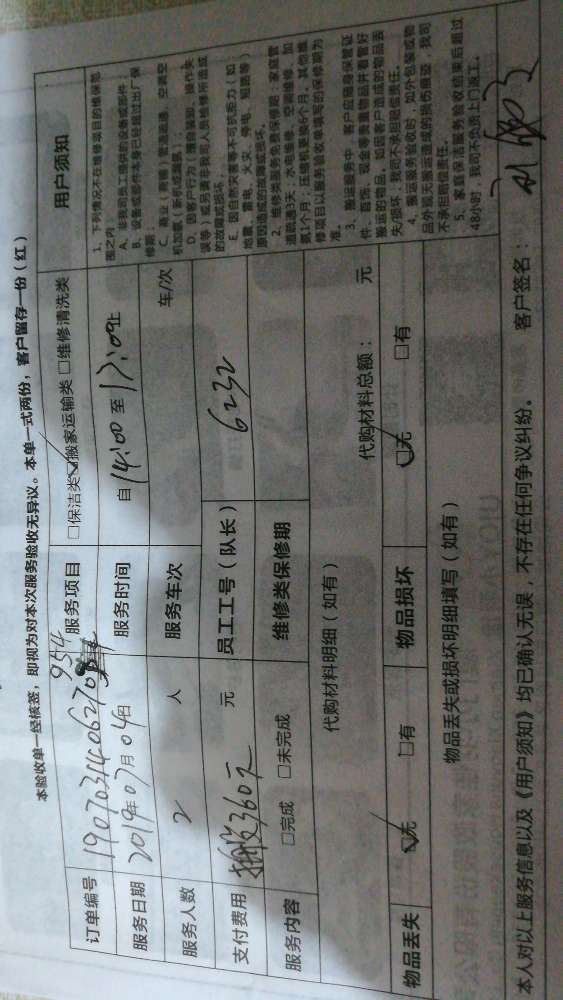 本验收单一经核签，即视为对本次服务验收无异议。本单一式两份，客户留存一份（红）
订单编号 1907031406270 954
服务项目 □保洁类 ☑搬家运输类 □维修清洗类
服务日期 2019年07月04日
服务时间 自14:00至17:00止
服务人数 2 人
服务车次 车/次
支付费用 360元 元
员工工号（队长） 6232
服务内容 □完成 □未完成
维修类保修期
代购材料明细（如有）
代购材料总额： 元
物品丢失 ☑无 □有
物品损坏 ☑无 □有
物品丢失或损坏明细填写（如有）
用户须知
1、下列情况不在维修项目的维保范
围之内：
A、非我司员工提供的设备或部件；
B、设备或部件本身已经超过出厂保
修期；
C、商业（商铺）管道疏通、空调空
机加氟（新机或漏氟）；
D、因客户行为（擅自装卸、操作失
误等）或另请非我司人员检修所造成
的故障或损坏；
E、因自然灾害等不可抗拒力（如：
地震、雷电、火灾、停电、短路等）
原因造成的故障或损坏。
2、维修类服务免费保修期：家庭管
道疏通3天，水电维修、空调维修、加
氟1个月；压缩机更换6个月。其他维
修项目以服务验收单填写的保修期为
准。
3、搬运服务中，客户应随身保管证
件、首饰、现金等贵重物品并看管好
搬运的物品，如因客户造成的物品丢
失/损坏，我司不承担赔偿责任。
4、搬运服务验收时，如外包装或物
品外观无搬运造成的损伤痕迹，我司
不承担赔偿责任。
5、家庭保洁服务验收结束后超过
48小时，我司不负责上门返工。
本人对以上服务信息以及《用户须知》均已确认无误，不存在任何争议纠纷。 客户签名：